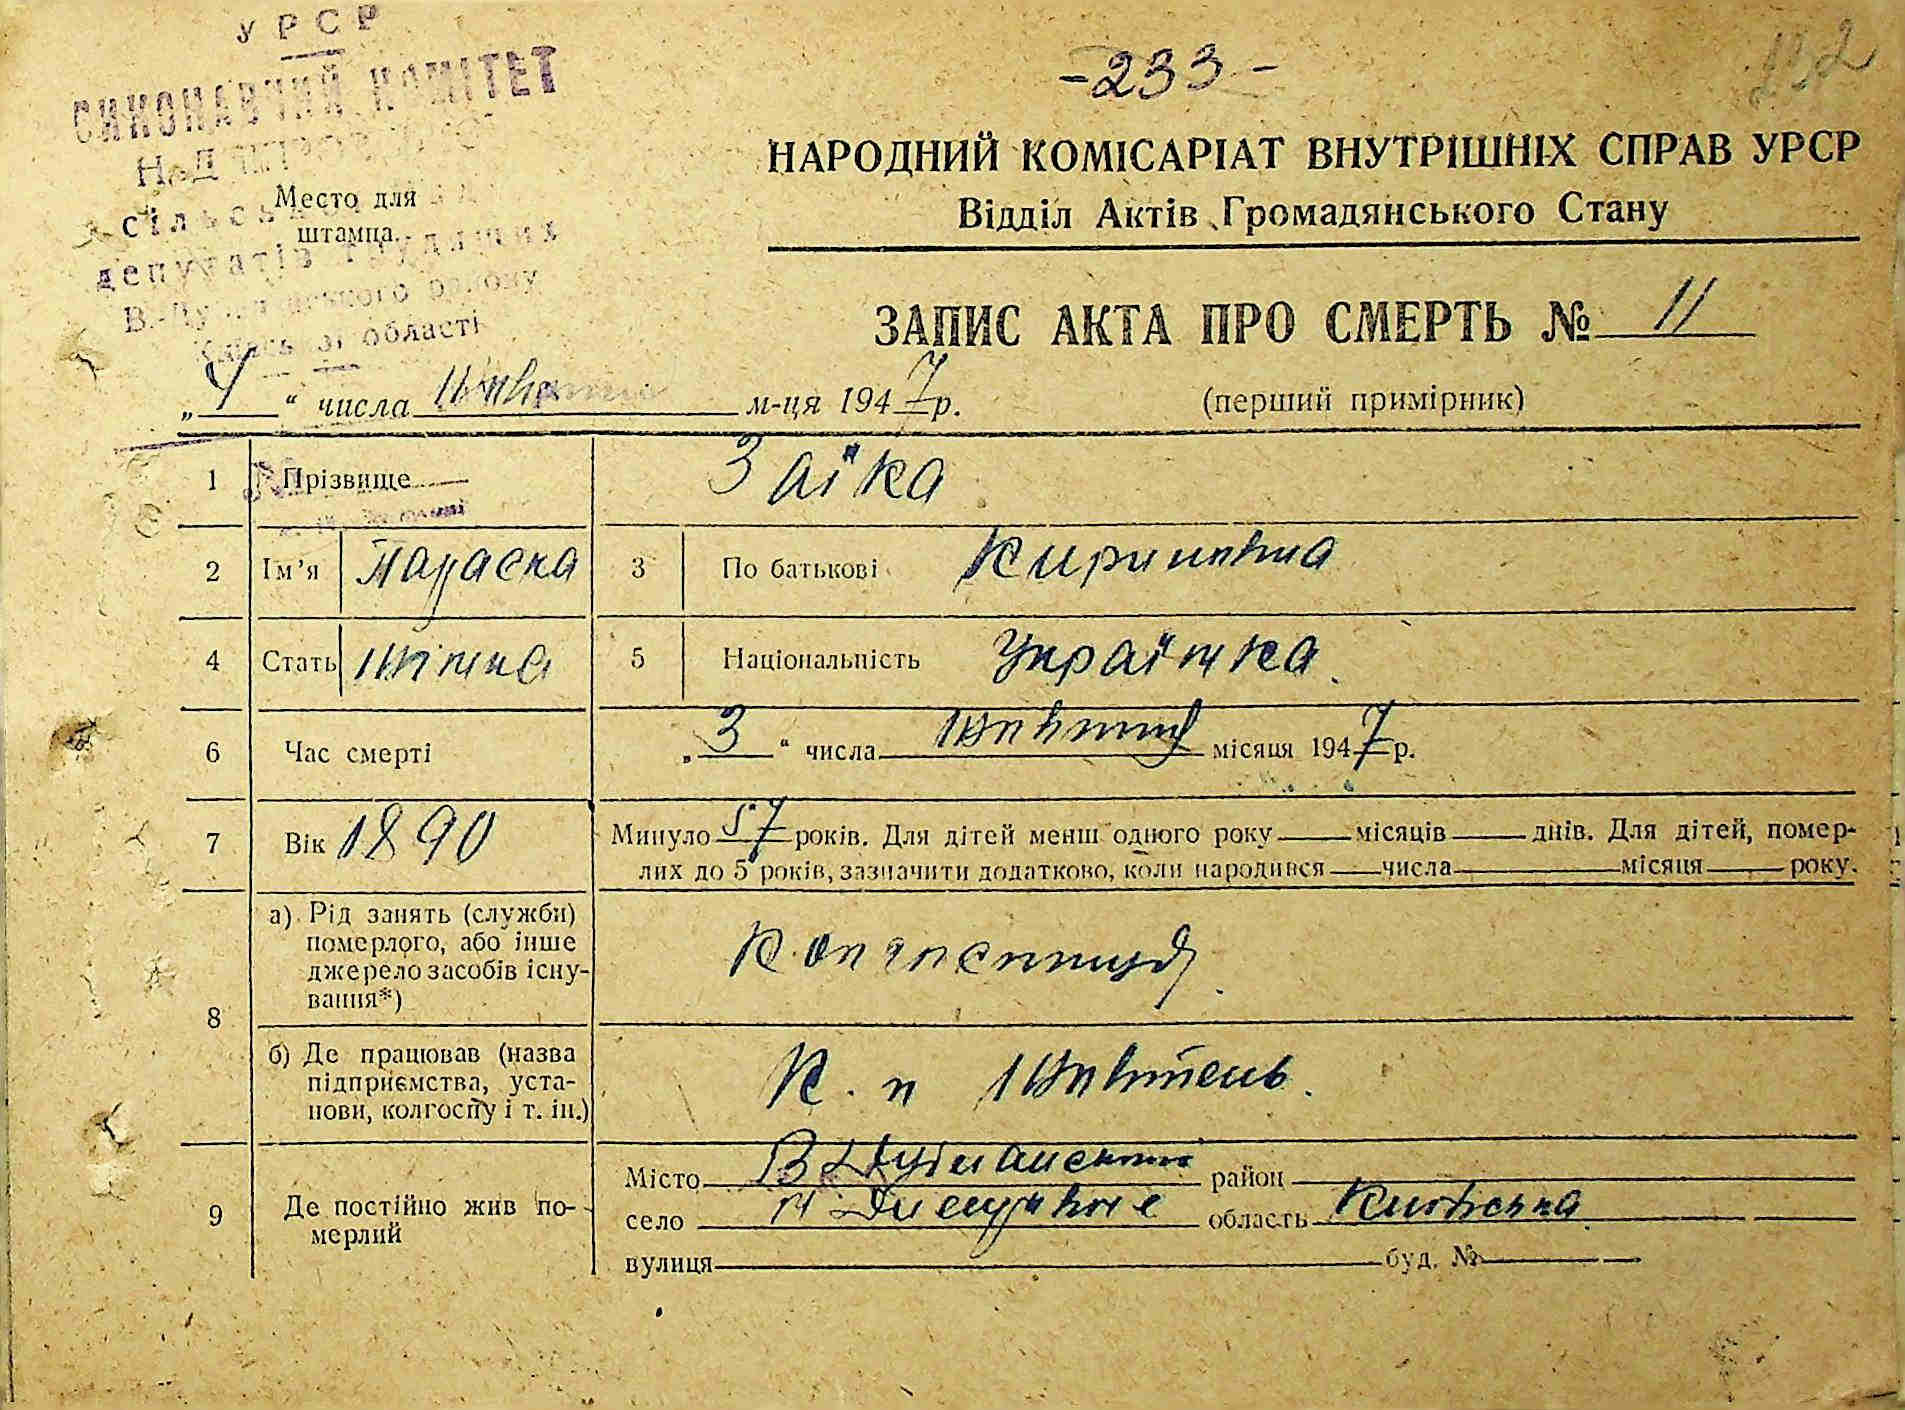 УРСР
-233-
НАРОДНИЙ КОМІСАРІАТ ВНУТРІШНІХ СПРАВ УРСР
Відділ Актів Громадянського Стану
Место для
штампа
депутатів трудящих
області
ЗАПИС АКТА ПРО СМЕРТЬ № 11
„4“ числа квітня м-ця 1947 р.
(перший примірник)
1 Прізвище Заїка
2 Ім'я Параска 3 По батькові Кирилівна
4 Стать жіноча 5 Національність Українка
6 Час смерті „3“ числа місяця 1947 р.
7 Вік 1890 Минуло 57 років. Для дітей менш одного року місяців днів. Для дітей, помер-
лих до 5 років, зазначити додатково, коли народився числа місяця року.
8 а) Рід занять (служби)
померлого, або інше
джерело засобів існу-
вання*)
Колгоспниця
б) Де працював (назва
підприємства, уста-
нови, колгоспу і т. ін.)
К. п Жовтень
9 Де постійно жив по-
мерлий
Місто район
село область Київська
вулиця буд. №